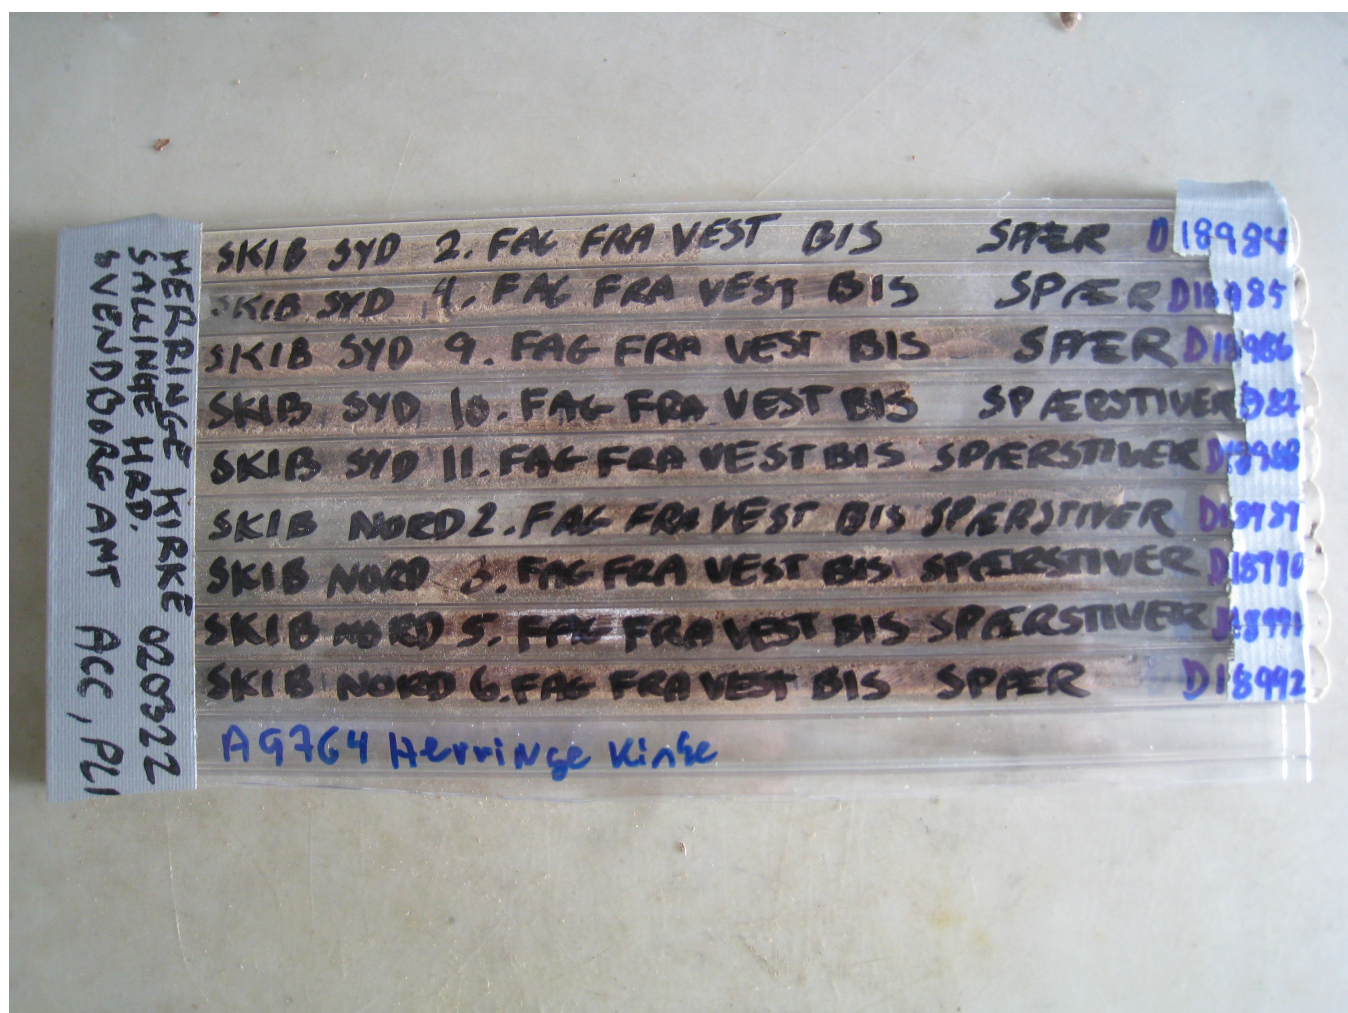 HERRINGE KIRKE 020322
SALLINGE HRD.
SVENDBORG AMT ACC, PLI
SKIB SYD 2. FAG FRA VEST BIS SPÆR D18984
SKIB SYD 4. FAG FRA VEST BIS SPÆR D18985
SKIB SYD 9. FAG FRA VEST BIS SPÆR D18986
SKIB SYD 10. FAG FRA VEST BIS SPÆRSTIVER
SKIB SYD 11. FAG FRA VEST BIS SPÆRSTIVER D18988
SKIB NORD 2. FAG FRA VEST BIS SPÆRSTIVER D18989
SKIB NORD 3. FAG FRA VEST BIS SPÆRSTIVER D18990
SKIB NORD 5. FAG FRA VEST BIS SPÆRSTIVER D18991
SKIB NORD 6. FAG FRA VEST BIS SPÆR D18992
A9764 Herringe Kirke